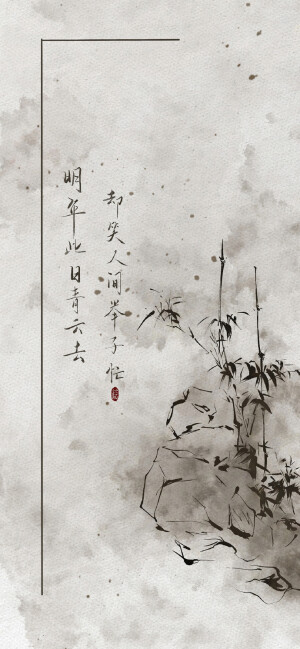 明年此日青云去
却笑人间举子忙